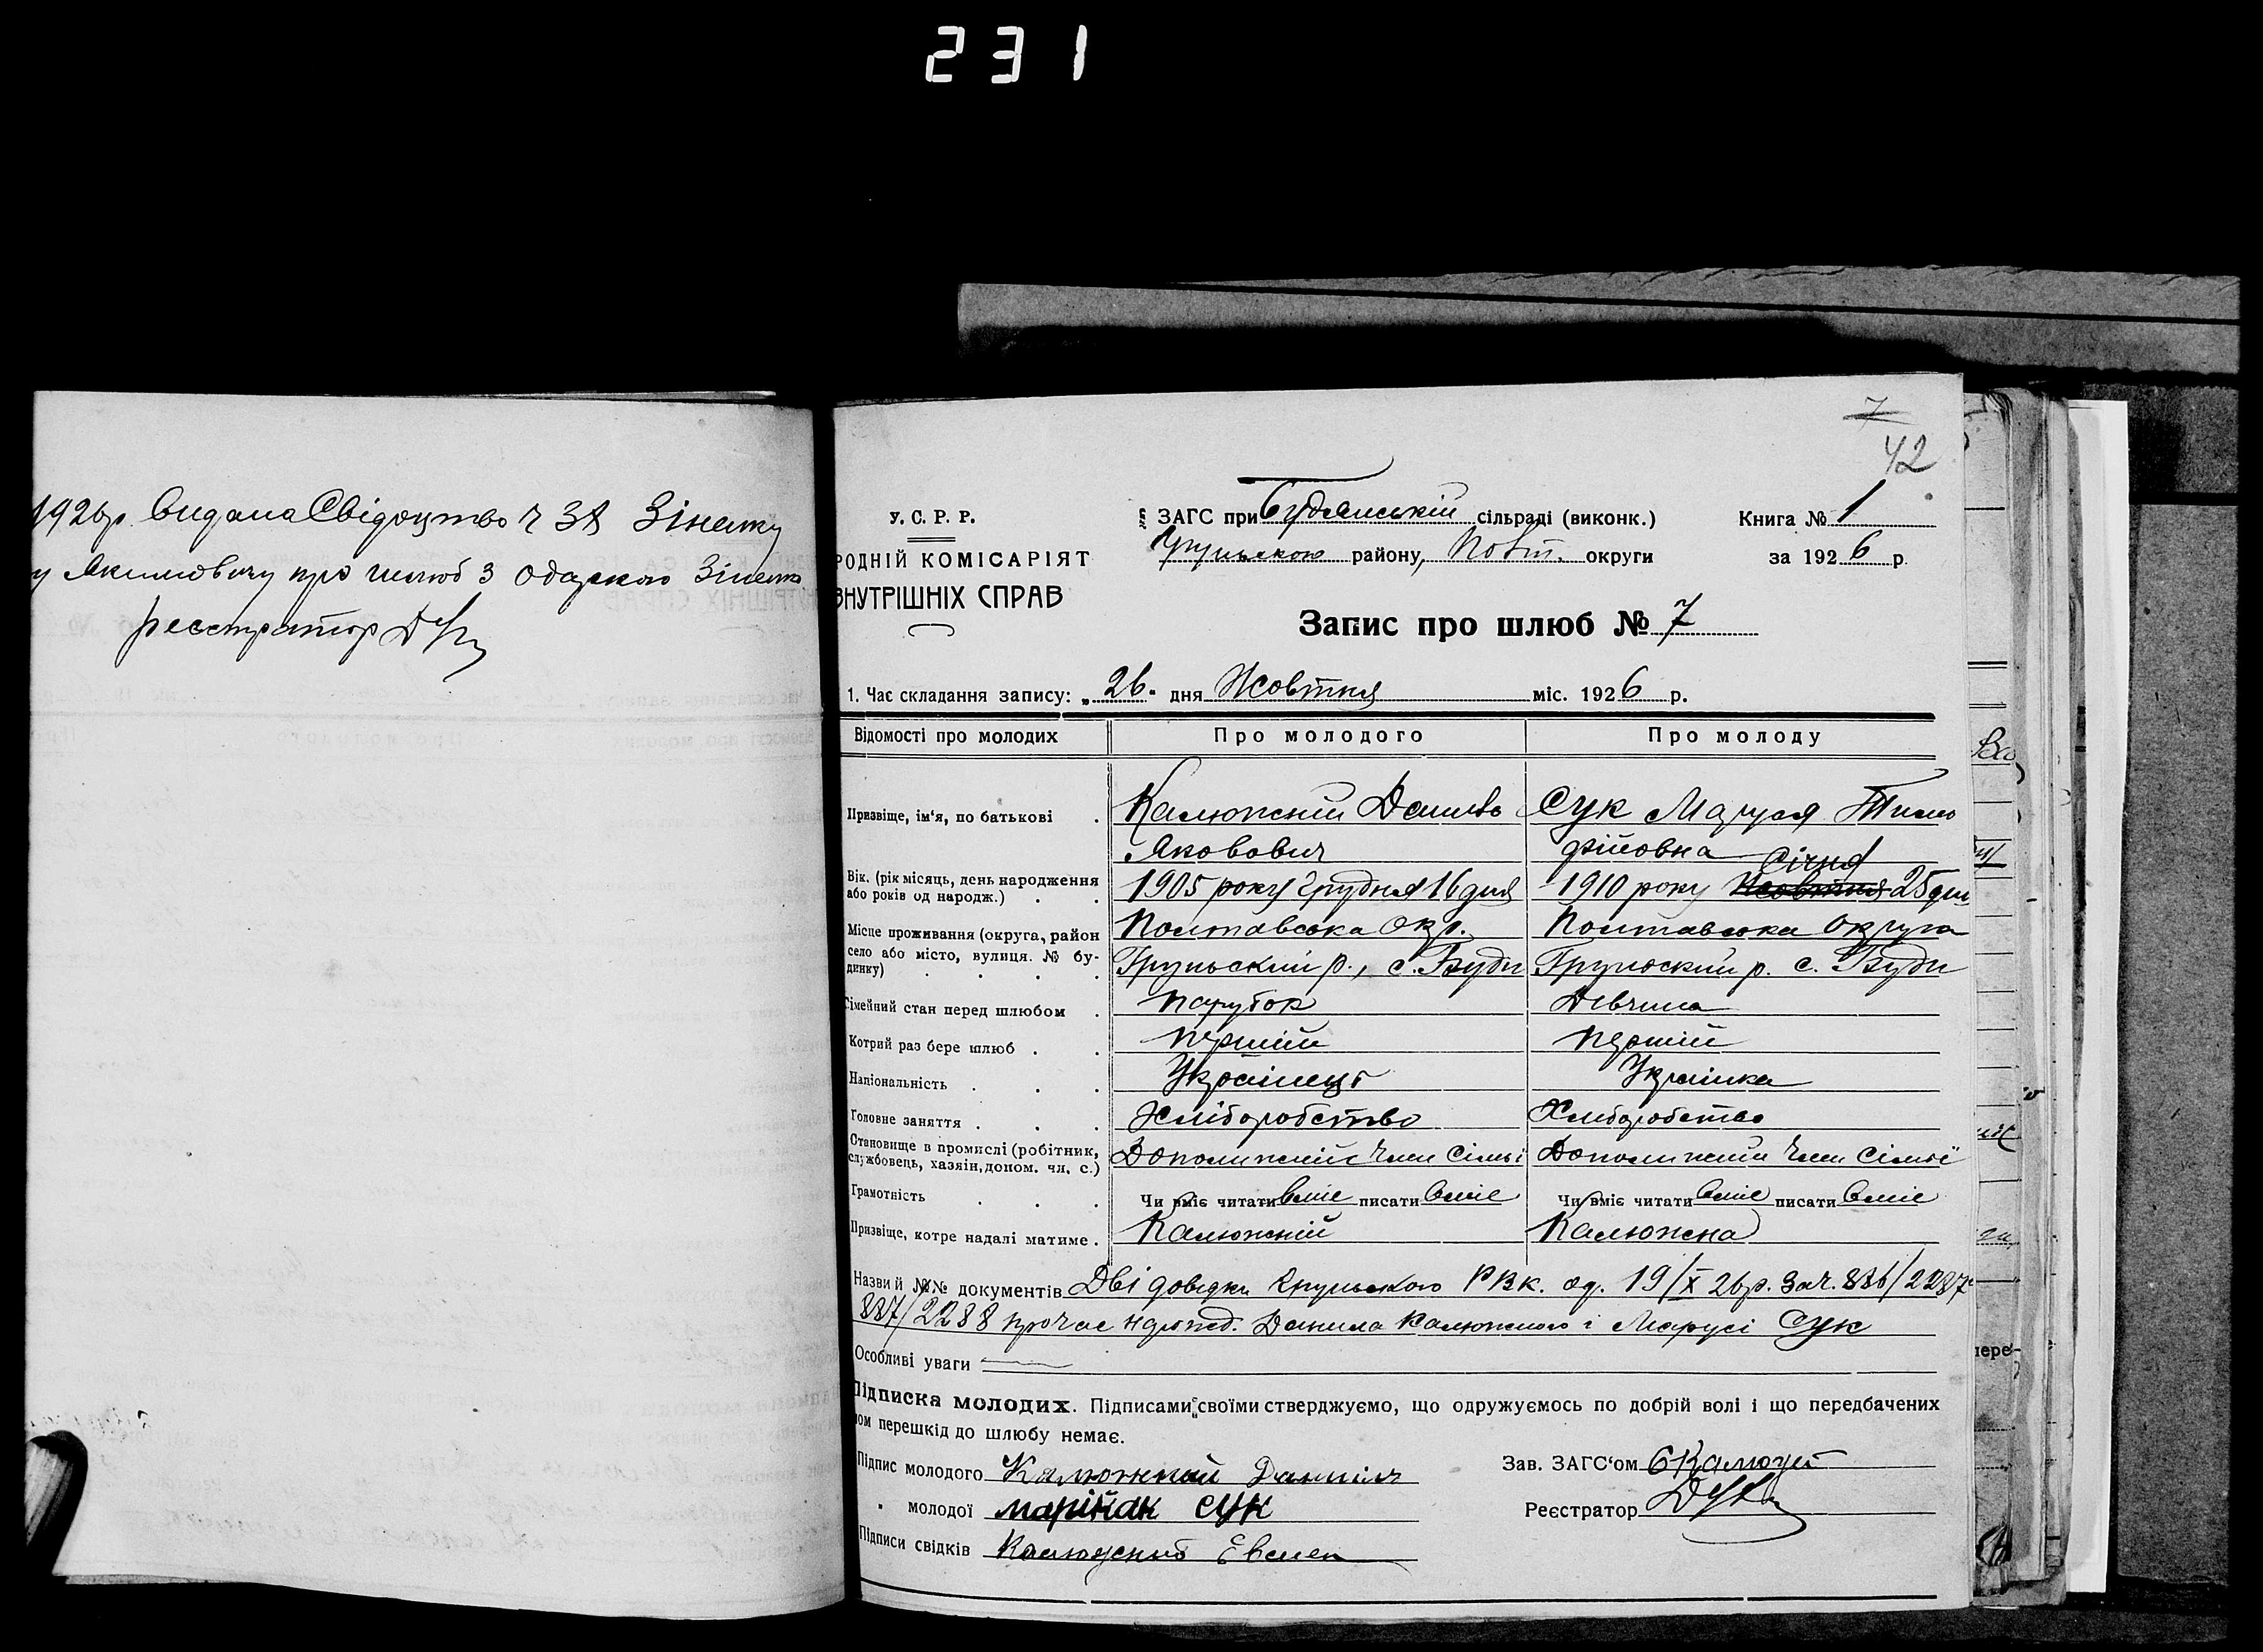 231
1926р. Видана Свідоцтво Ч 38 Зіненку
у Якимовичу про шлюб з Одаркою Зіненко
реєстратор
7
42
У. С. Р. Р.
РОДНІЙ КОМІСАРІЯТ
ВНУТРІШНІХ СПРАВ
ЗАГС при Будянській сільраді (виконк.)
Груньского району, Полт. округи
Книга № 1
за 1926 р.
Запис про шлюб № 7
1. Час складання запису: „26" дня Жовтня міс. 1926 р.
Відомості про молодих Про молодого Про молоду
Призвіще, ім'я, по батькові . Калюжний Данило Сук Маруся Тимо
Якович фійовна
Вік. (рік місяць, день народження або років од народж.) . . 1905 року Грудня 16 дня 1910 року Жовтня Січня 25 дня
Місце проживання (округа, район село або місто, вулиця. № будинку) . . . . Полтавська Окр. Полтавська Округа
Груньский р., с. Буди Груньский р. с. Буди
Сімейний стан перед шлюбом . парубок Дівчина
Котрий раз бере шлюб . . перший перший
Національність . . . Українець Українка
Головне заняття . . . Хліборобство Хліборобство
Становище в промислі (робітник, службовець, хазяін, допом. чл. с.) Допоміжний Член Сімьї Допоміжний Член Сімьї
Грамотність . . . Чи вміє читати вміє писати вміє Чи вміє читати вміє писати вміє
Призвіще, котре надалі матиме . Калюжний Калюжна
Назви й №№ документів Дві довідки Грунського РВК. од. 19/X 26р. За ч. 886/2287
887/2288 про час народж. Данила Калюжного і Марусі Сук
Особливі уваги —
Підписка молодих. Підписами своїми стверджуємо, що одружуємось по добрій волі і що передбачених
ом перешкід до шлюбу немає.
Підпис молодого Калюжний Даниіл
„ молодої Сук
Підписи свідків Калюжний Евмен
Зав. ЗАГС'ом
Реєстратор